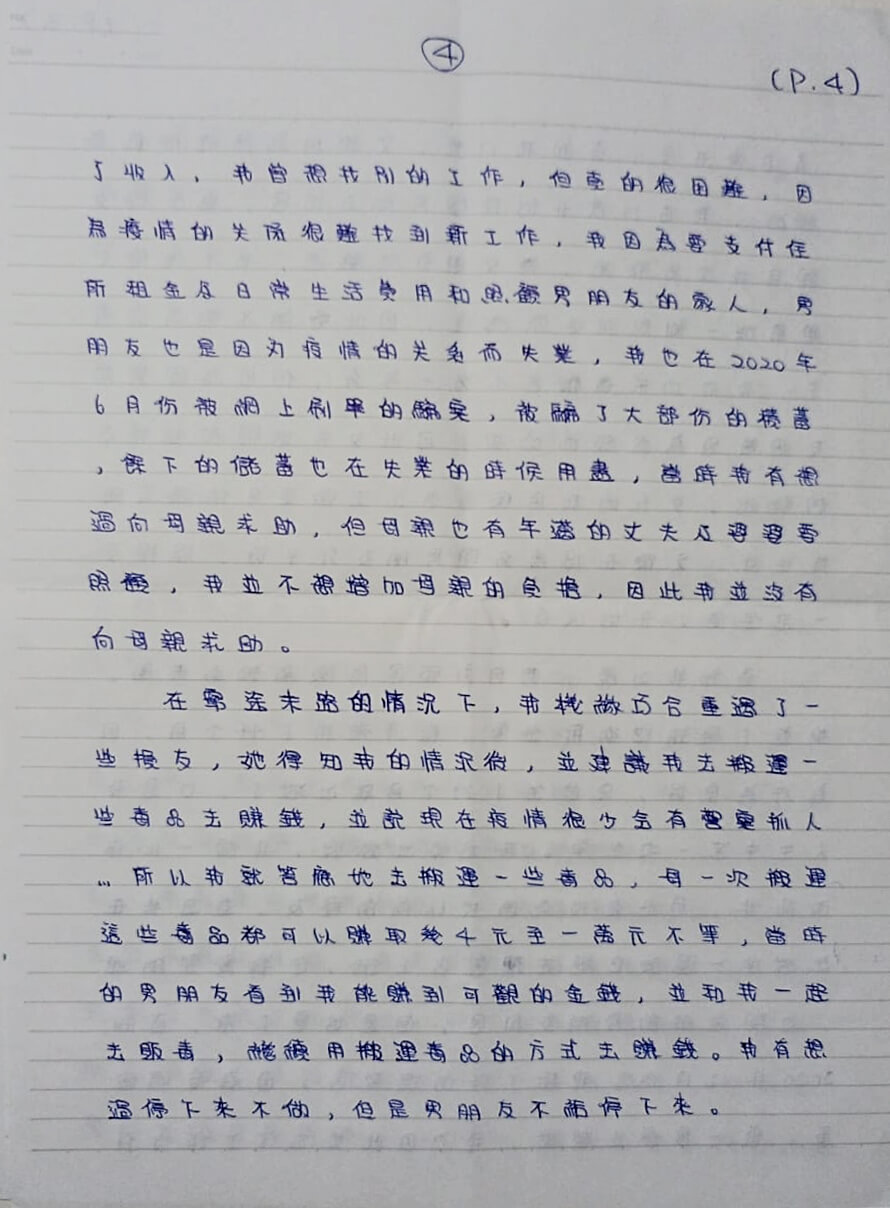 ④
(P.4)
了收入，我曾想找別的工作，但真的很困難，因
為疫情的关係很難找到新工作，我因為要支付住
所租金及日常生活費用和照顧男朋友的家人，男
朋友也是因为疫情的关系而失業，我也在2020年
6月份被網上刷單的騙案，被騙了大部份的積蓄
，餘下的儲蓄也在失業的時候用盡，當時我有想
過向母親求助，但母親也有年邁的丈夫及婆婆要
照顧，我並不想增加母親的負擔，因此我並沒有
向母親求助。
在窮途末路的情況下，我機緣巧合重遇了一
些損友，她得知我的情況後，並建議我去搬運一
些毒品去賺錢，並說現在疫情很少會有警察抓人
…所以我就答應她去搬運一些毒品，每一次搬運
這些毒品都可以賺取幾千元至一萬元不等，當時
的男朋友看到我能賺到可觀的金錢，並和我一起
去販毒，繼續用搬運毒品的方式去賺錢。我有想
過停下來不做，但是男朋友不語停下來。